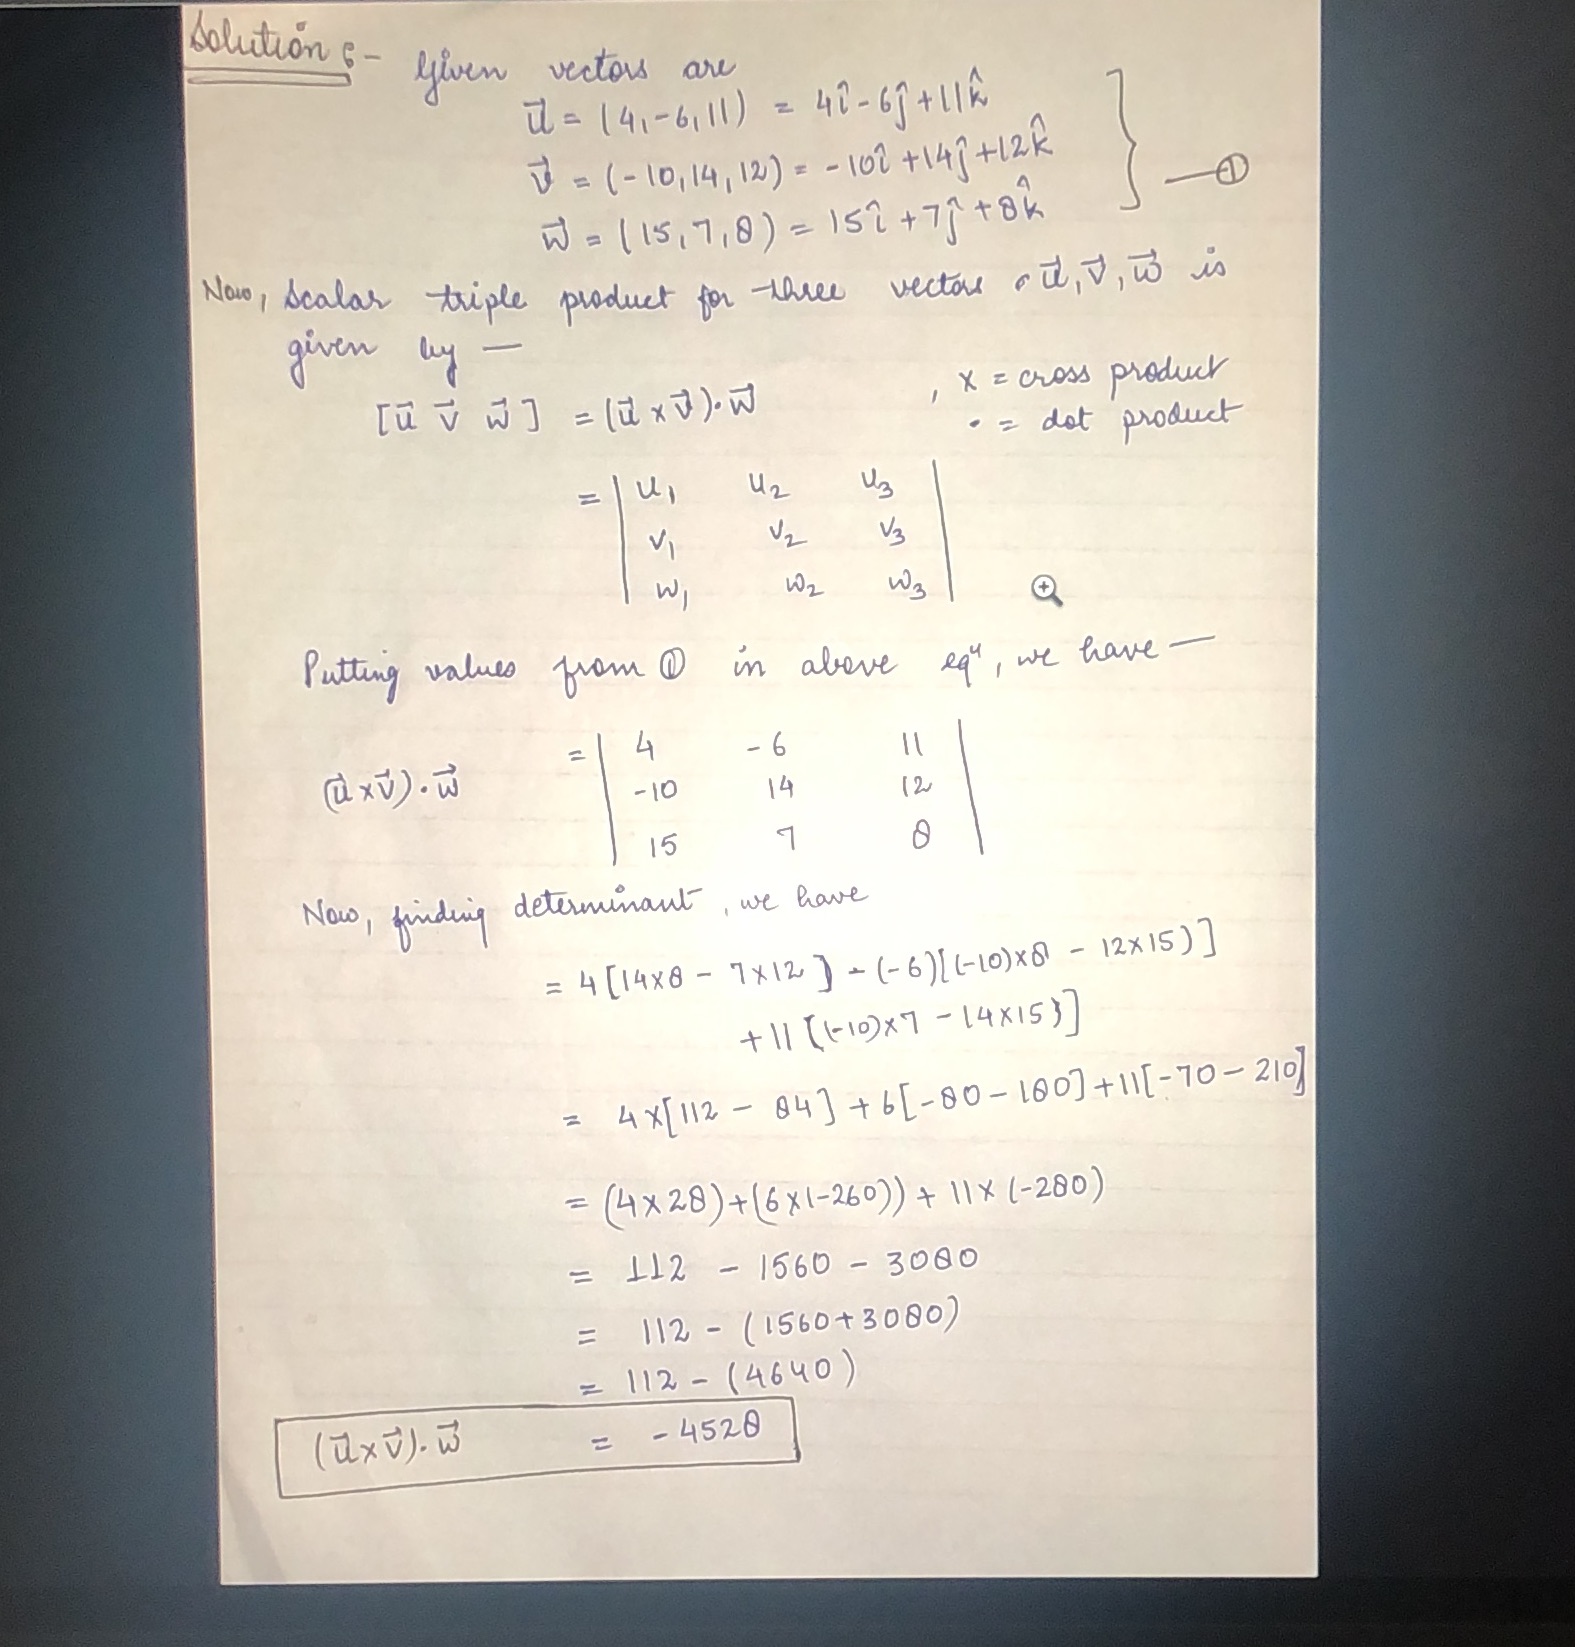 Solution :-  Given vectors are
u⃗ = (4,-6,11) = 4î - 6ĵ + 11k̂
v⃗ = (-10,14,12) = -10î + 14ĵ + 12k̂
w⃗ = (15,7,8) = 15î + 7ĵ + 8k̂ } — ①
Now, scalar triple product for three vectors u⃗, v⃗, w⃗ is
given by —
[u⃗ v⃗ w⃗] = (u⃗ × v⃗)·w⃗ , × = cross product
· = dot product
= | u₁ u₂ u₃ |
| v₁ v₂ v₃ |
| w₁ w₂ w₃ |
Putting values from ① in above eqⁿ, we have —
(u⃗ × v⃗)·w⃗ = | 4 -6 11 |
| -10 14 12 |
| 15 7 8 |
Now, finding determinant, we have
= 4[14×8 - 7×12] - (-6)[(-10)×8 - 12×15)]
+ 11[(-10)×7 - 14×15)]
= 4×[112 - 84] + 6[-80 - 180] + 11[-70 - 210]
= (4×28) + (6×(-260)) + 11×(-280)
= 112 - 1560 - 3080
= 112 - (1560+3080)
= 112 - (4640)
(u⃗ × v⃗)·w⃗ = -4528